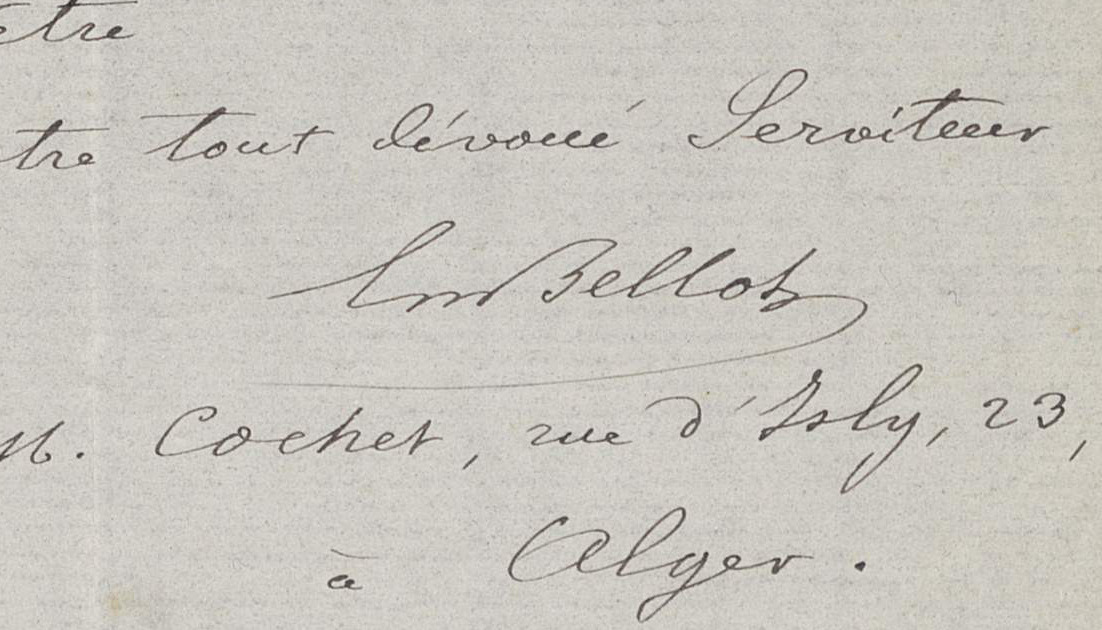 être
tre tout dévoué Serviteur
Em Bellot
M. Cochet, rue d'Isly, 23,
à Alger.